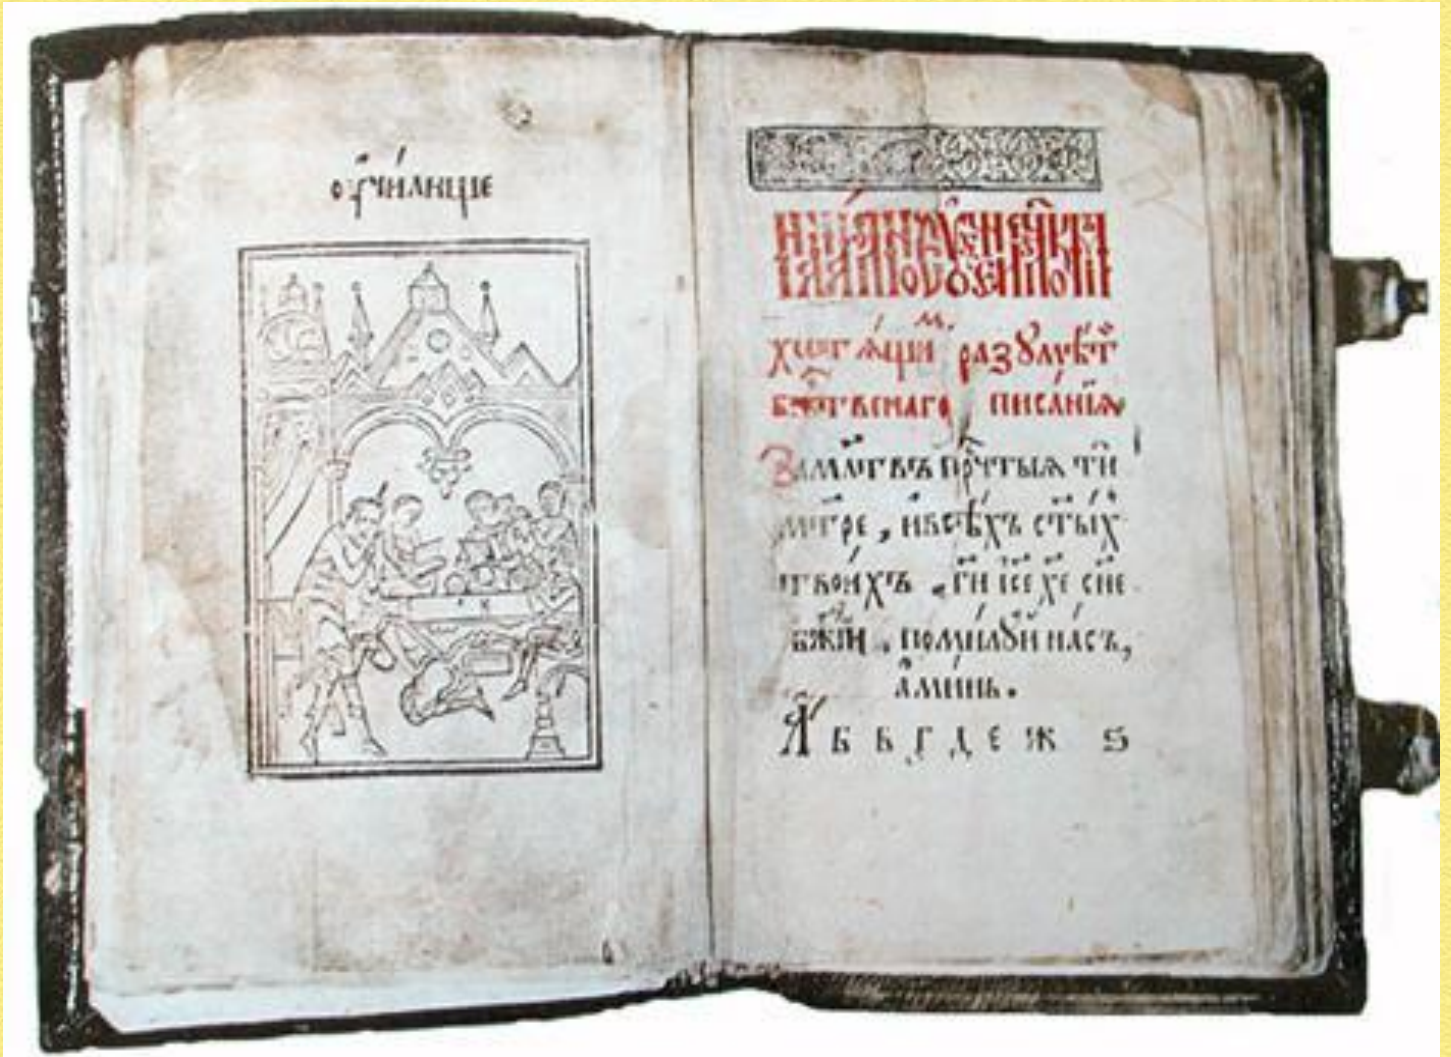 оу҆чи́лище
хотѧ́щиⷨ разꙋмѣ́ти
бжⷭ҇твенаго писа́нїѧ
За мл҃твъ прⷱ҇тыѧ ти
мт҃ре, и҆ всѣ́хъ ст҃ы́хъ
твои́хъ, гн҃ і҆с҃е х҃е сн҃е
бж҃їи, поми́лꙋй на́съ,
а҆ми́нь.
А҆́ б в г д е ж ѕ